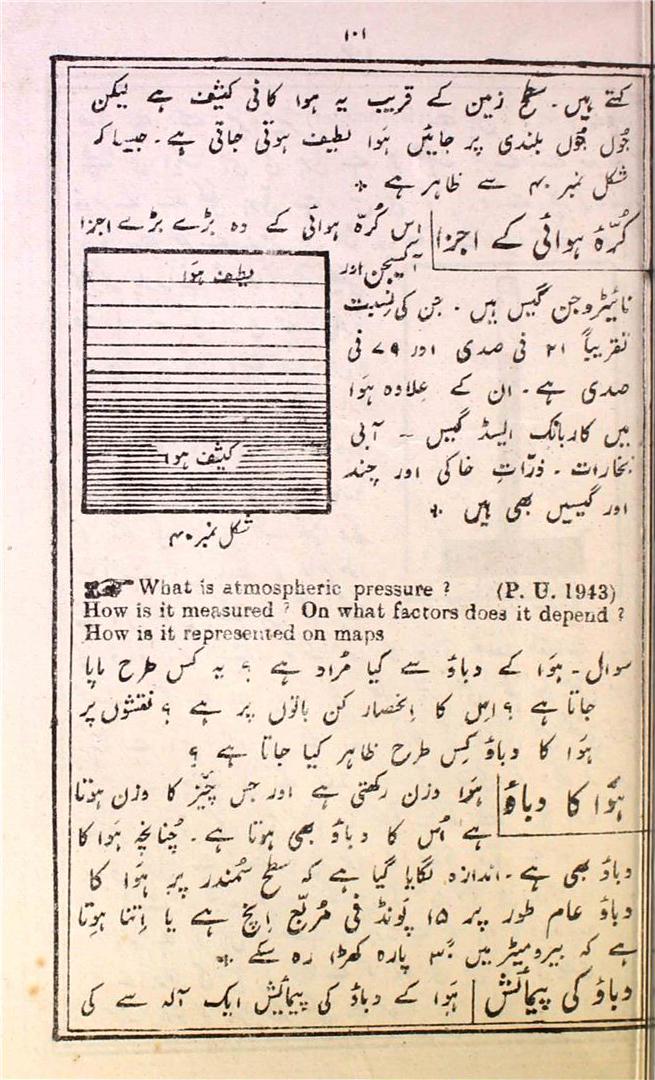 ۱۰۱
کہتے ہیں۔ سطح زمین کے قریب یہ ہوا کافی کثیف ہے لیکن
جُوں جُوں بلندی پر جائیں ہَوا لطیف ہوتی جاتی ہے۔ جیسا کہ
شکل نمبر ۴۰ سے ظاہر ہے *
کُرّۂ ہوائی کے اجزا
اس کُرّہ ہوائی کے دو بڑے بڑے اجزا
آکسیجن اور
نائیٹروجن گیس ہیں۔ جن کی نِسبت
تقریباً ۲۱ فی صدی اور ۷۹ فی
صدی ہے۔ ان کے عِلاوہ ہَوا
میں کاربانک ایسڈ گیس ۔ آبی
بخارات ۔ ذرّاتِ خاکی اور چند
اور گیسیں بھی ہیں *
لطیف ہَوا
کثیف ہوا
شکل نمبر ۴۰
What is atmospheric pressure ? (P. U. 1943)
How is it measured ? On what factors does it depend ?
How is it represented on maps
سوال۔ ہَوا کے دباؤ سے کیا مُراد ہے ؟ یہ کس طرح ماپا
جاتا ہے ؟ اس کا اِنحصار کن باتوں پر ہے ؟ نقشوں پر
ہَوا کا دباؤ کِس طرح ظاہر کیا جاتا ہے ؟
ہَوا کا دباؤ
ہَوا وزن رکھتی ہے اور جس چیز کا وزن ہوتا
ہے اُس کا دباؤ بھی ہوتا ہے۔ چُنانچہ ہَوا کا
دباؤ بھی ہے۔ اندازہ لگایا گیا ہے کہ سطح سُمندر پر ہَوا کا
دباؤ عام طور پر ۱۵ پَونڈ فی مُربّع اِنچ ہے یا اِتنا ہوتا
ہے کہ بیرومیٹر میں ۳۰ً پارہ کھڑا رہ سکے *
دباؤ کی پیمائش
ہَوا کے دباؤ کی پیمائیش ایک آلہ سے کی